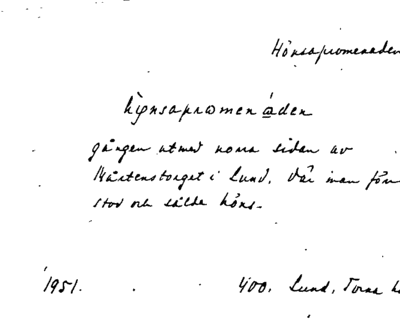 Hönsapromenaden
hönsapromenáden
gången utmed norra sidan av
Mårtenstorget i Lund. Där man förr
stod och sålde höns.
1951. 400. Lund, Torna